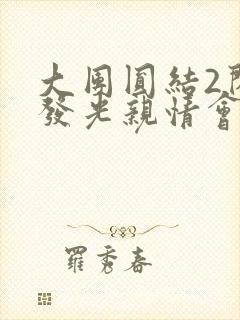 大團圓結2
發光親情會
羅秀春